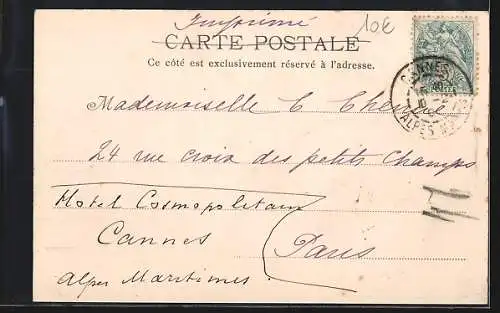 Imprimé
10€
CARTE POSTALE
Ce côté est exclusivement réservé à l'adresse.
CANNES
ALPES
Mademoiselle C
24 rue croix des petits Champs
Hotel Cosmopolitain
Cannes
Paris
Alpes Maritimes